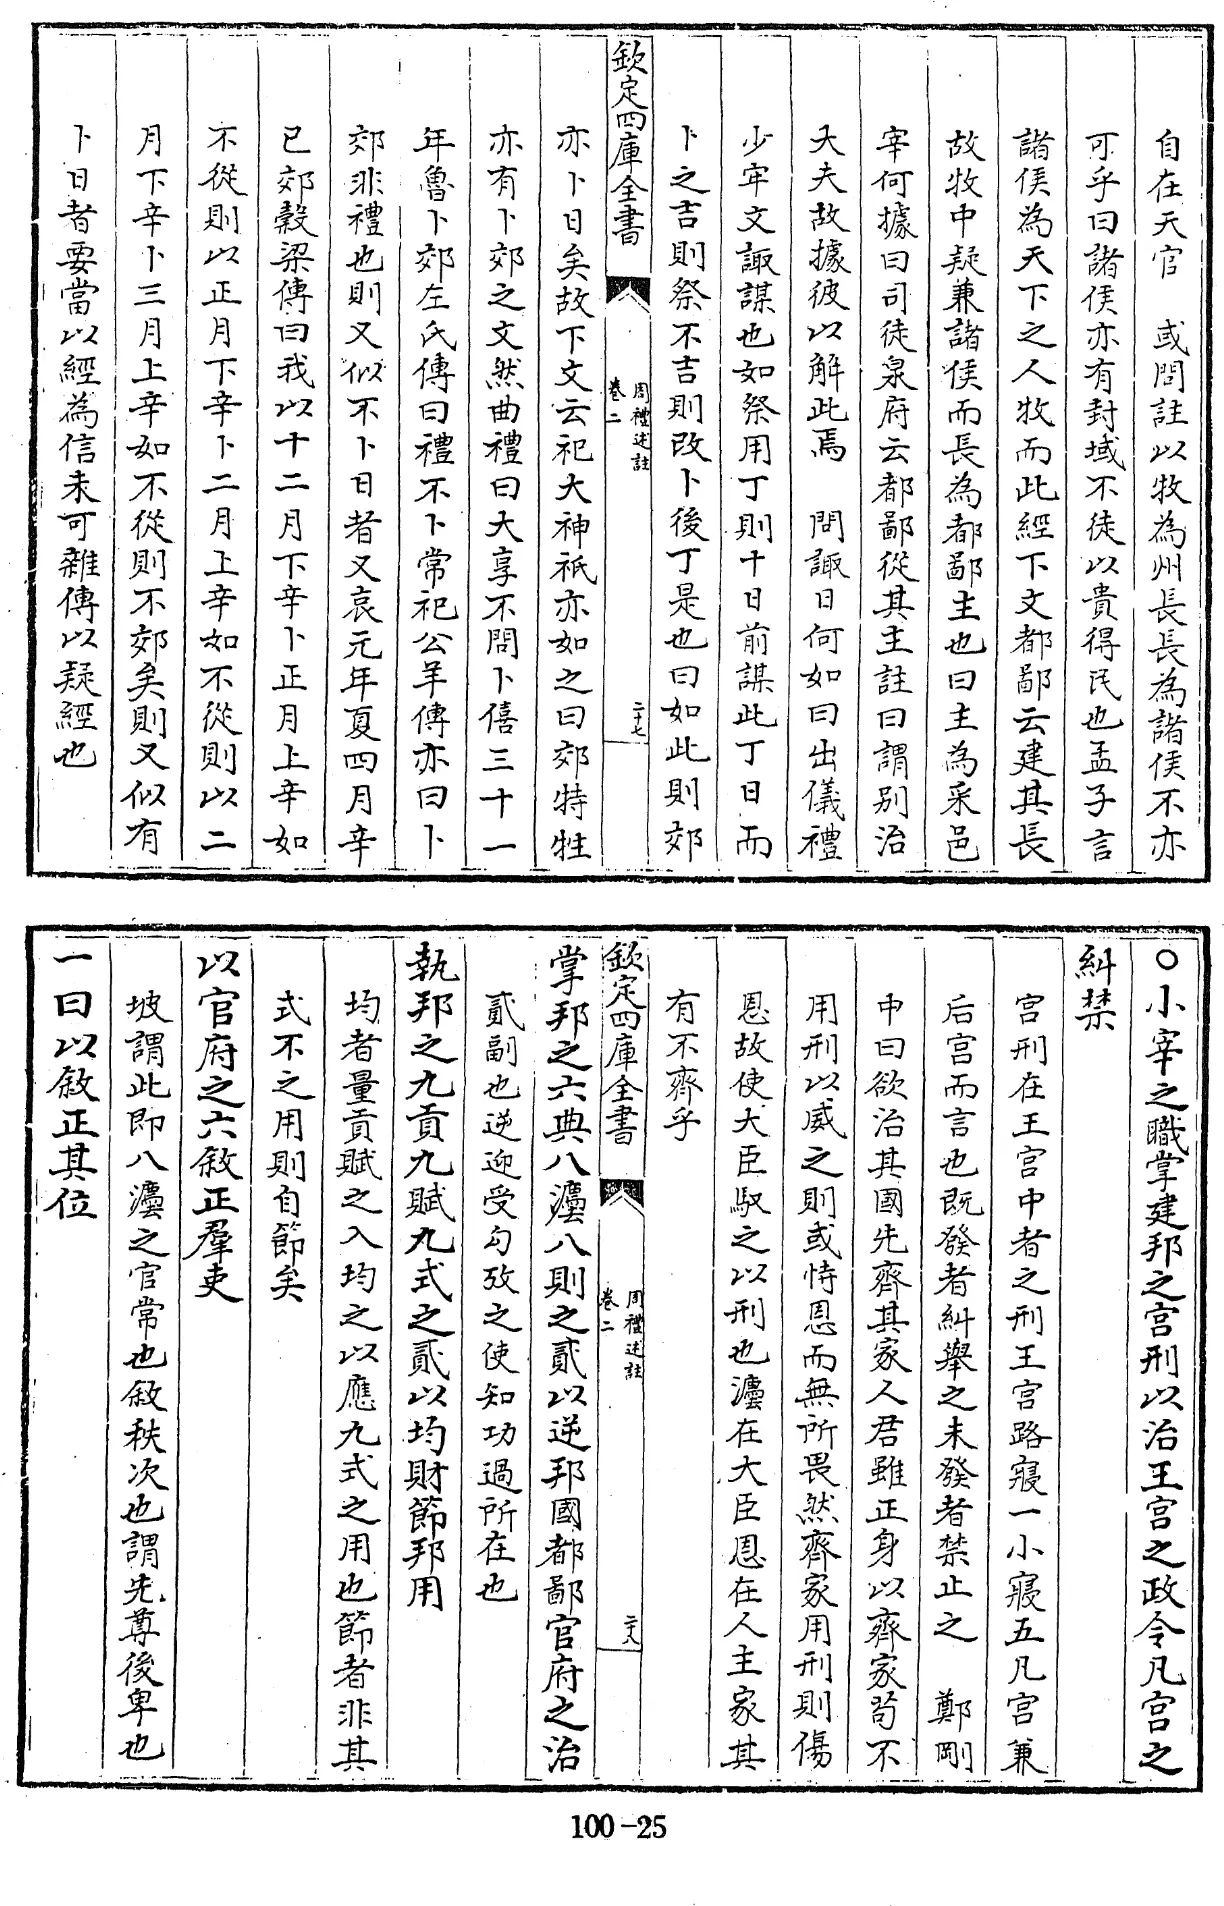 自在天官　或問註以牧為州長長為諸侯不亦
可乎曰諸侯亦有封域不徒以貴得民也孟子言
諸侯為天下之人牧而此經下文都鄙云建其長
故牧中疑兼諸侯而長為都鄙主也曰主為采邑
宰何據曰司徒泉府云都鄙從其主註曰謂別治
大夫故據彼以解此焉　問諏日何如曰出儀禮
少牢文諏謀也如祭用丁則十日前謀此丁日而
卜之吉則祭不吉則改卜後丁是也曰如此則郊
欽定四庫全書
周禮述註
卷二
二十七
亦卜日矣故下文云祀大神祇亦如之曰郊特牲
亦有卜郊之文然曲禮曰大享不問卜僖三十一
年魯卜郊左氏傳曰禮不卜常祀公羊傳亦曰卜
郊非禮也則又似不卜日者又哀元年夏四月辛
已郊穀梁傳曰我以十二月下辛卜正月上辛如
不從則以正月下辛卜二月上辛如不從則以二
月下辛卜三月上辛如不從則不郊矣則又似有
卜日者要當以經為信未可雜傳以疑經也
○小宰之職掌建邦之宫刑以治王宫之政令凡宫之
糾禁
宫刑在王宫中者之刑王宫路寢一小寢五凡宫兼
后宫而言也既發者糾舉之未發者禁止之　鄭剛
中曰欲治其國先齊其家人君雖正身以齊家茍不
用刑以威之則或恃恩而無所畏然齊家用刑則傷
恩故使大臣馭之以刑也灋在大臣恩在人主家其
有不齊乎
欽定四庫全書
周禮述註
卷二
二十八
掌邦之六典八灋八則之貳以逆邦國都鄙官府之治
貳副也逆迎受勾攷之使知功過所在也
執邦之九貢九賦九式之貳以均財節邦用
均者量貢賦之入均之以應九式之用也節者非其
式不之用則自節矣
以官府之六敘正羣吏
坡謂此即八灋之官常也敘秩次也謂先尊後卑也
一曰以敘正其位
100-25